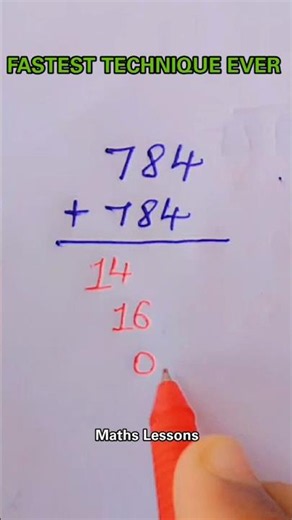 FASTEST TECHNIQUE EVER
784
+ 784
14
16
0
Maths Lessons